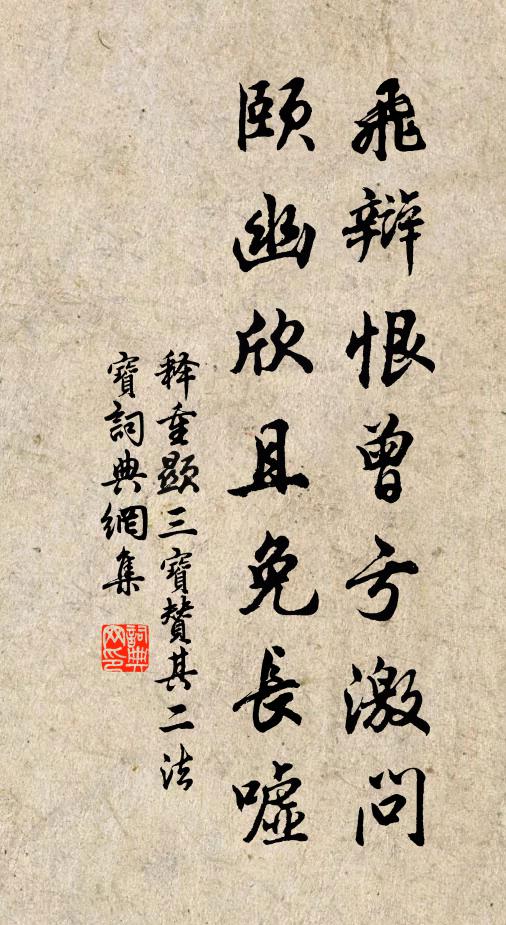 飛辯恨曾亏激問
頤幽欣且免長嘘
释重顯三寶贊其二法
寶詞典網集
詞典网印